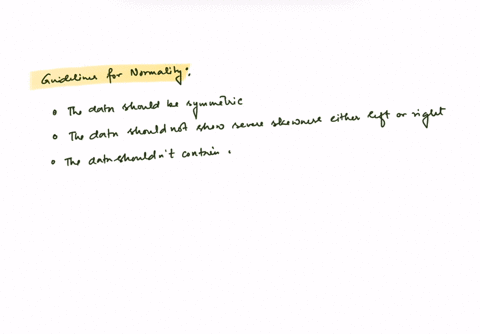 Guidelines for Normality:
• The data should be symmetric
• The data should not show severe skewness either left or right
• The data shouldn't contain .